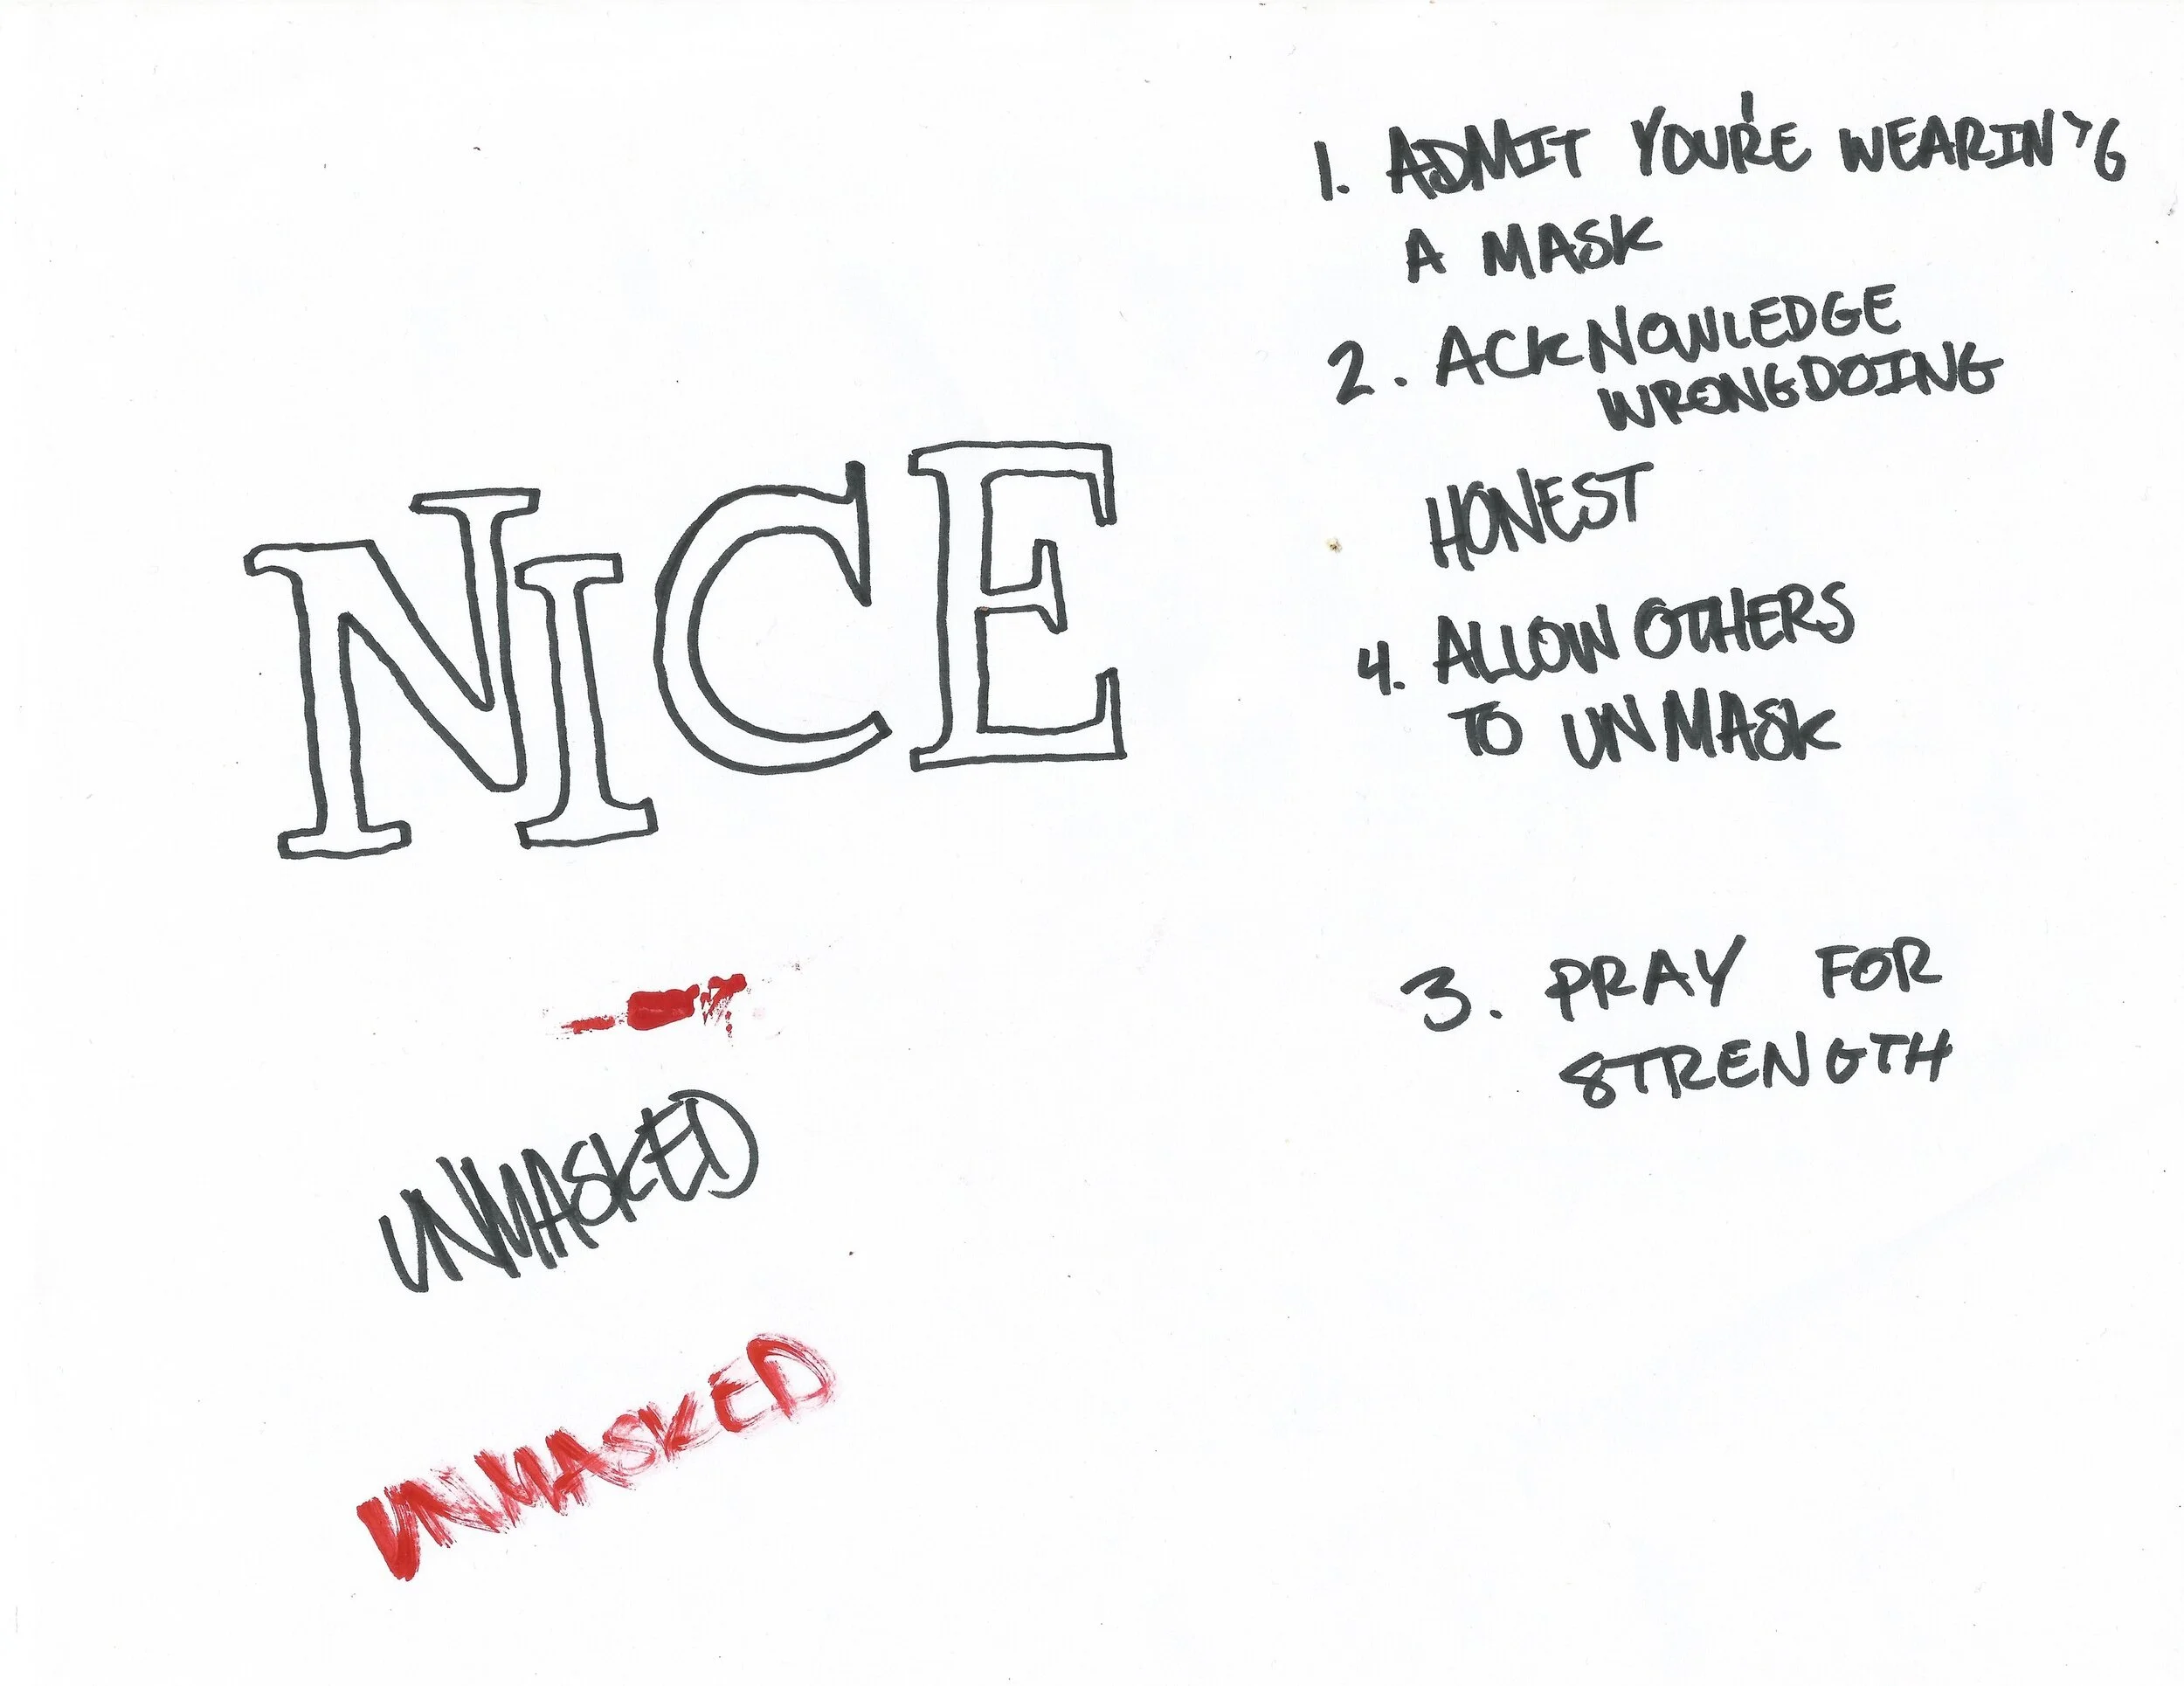 NICE
UNMASKED
UNMASKED
1. ADMIT YOU'RE WEARIN'G
A MASK
2. ACKNOWLEDGE
WRONGDOING
HONEST
4. ALLOW OTHERS
TO UNMASK
3. PRAY FOR
STRENGTH